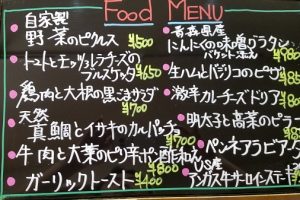 Food MENU
自家製
野菜のピクルス ¥500
トマトとモッツァレラチーズの
フルスサラダ ¥650
鶏肉と大根の黒ごまサラダ
¥700
天然
真鯛とイサキのカルパッチョ
¥700
牛肉と大葉のピリ辛ポン酢和え
¥800
ガーリックトースト ¥400
青森県産
にんにくの味噌グラタン
バケット添え ¥780
生ハムとバジリコのピザ
激辛カレーチーズドリア ¥80
明太子と高菜のピラフ
ペンネアラビアータ
US産
アンガス牛サーロインステーキ